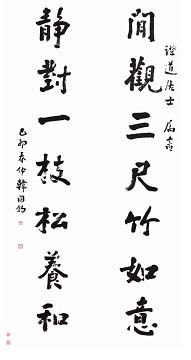 證道居士 屬書
閒觀三尺竹如意
靜對一枝松養和
己卯春仲韓國鈞